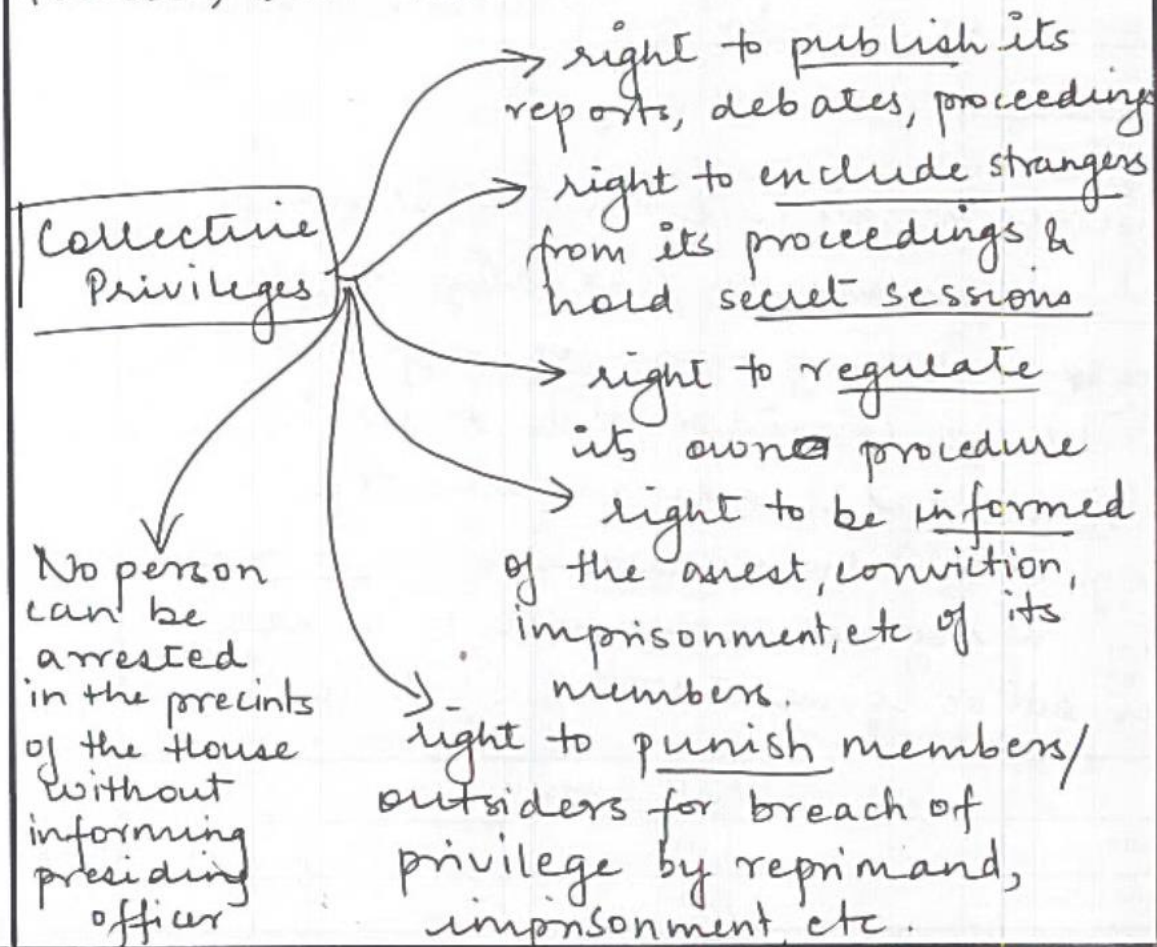 Collective
Privileges
right to publish its
reports, debates, proceedings
right to exclude strangers
from its proceedings &
hold secret sessions
right to regulate
its own procedure
right to be informed
of the arrest, conviction,
imprisonment, etc of its
members.
right to punish members/
outsiders for breach of
privilege by reprimand,
imprisonment, etc
No person
can be
arrested
in the precints
of the House
without
informing
presiding
officer